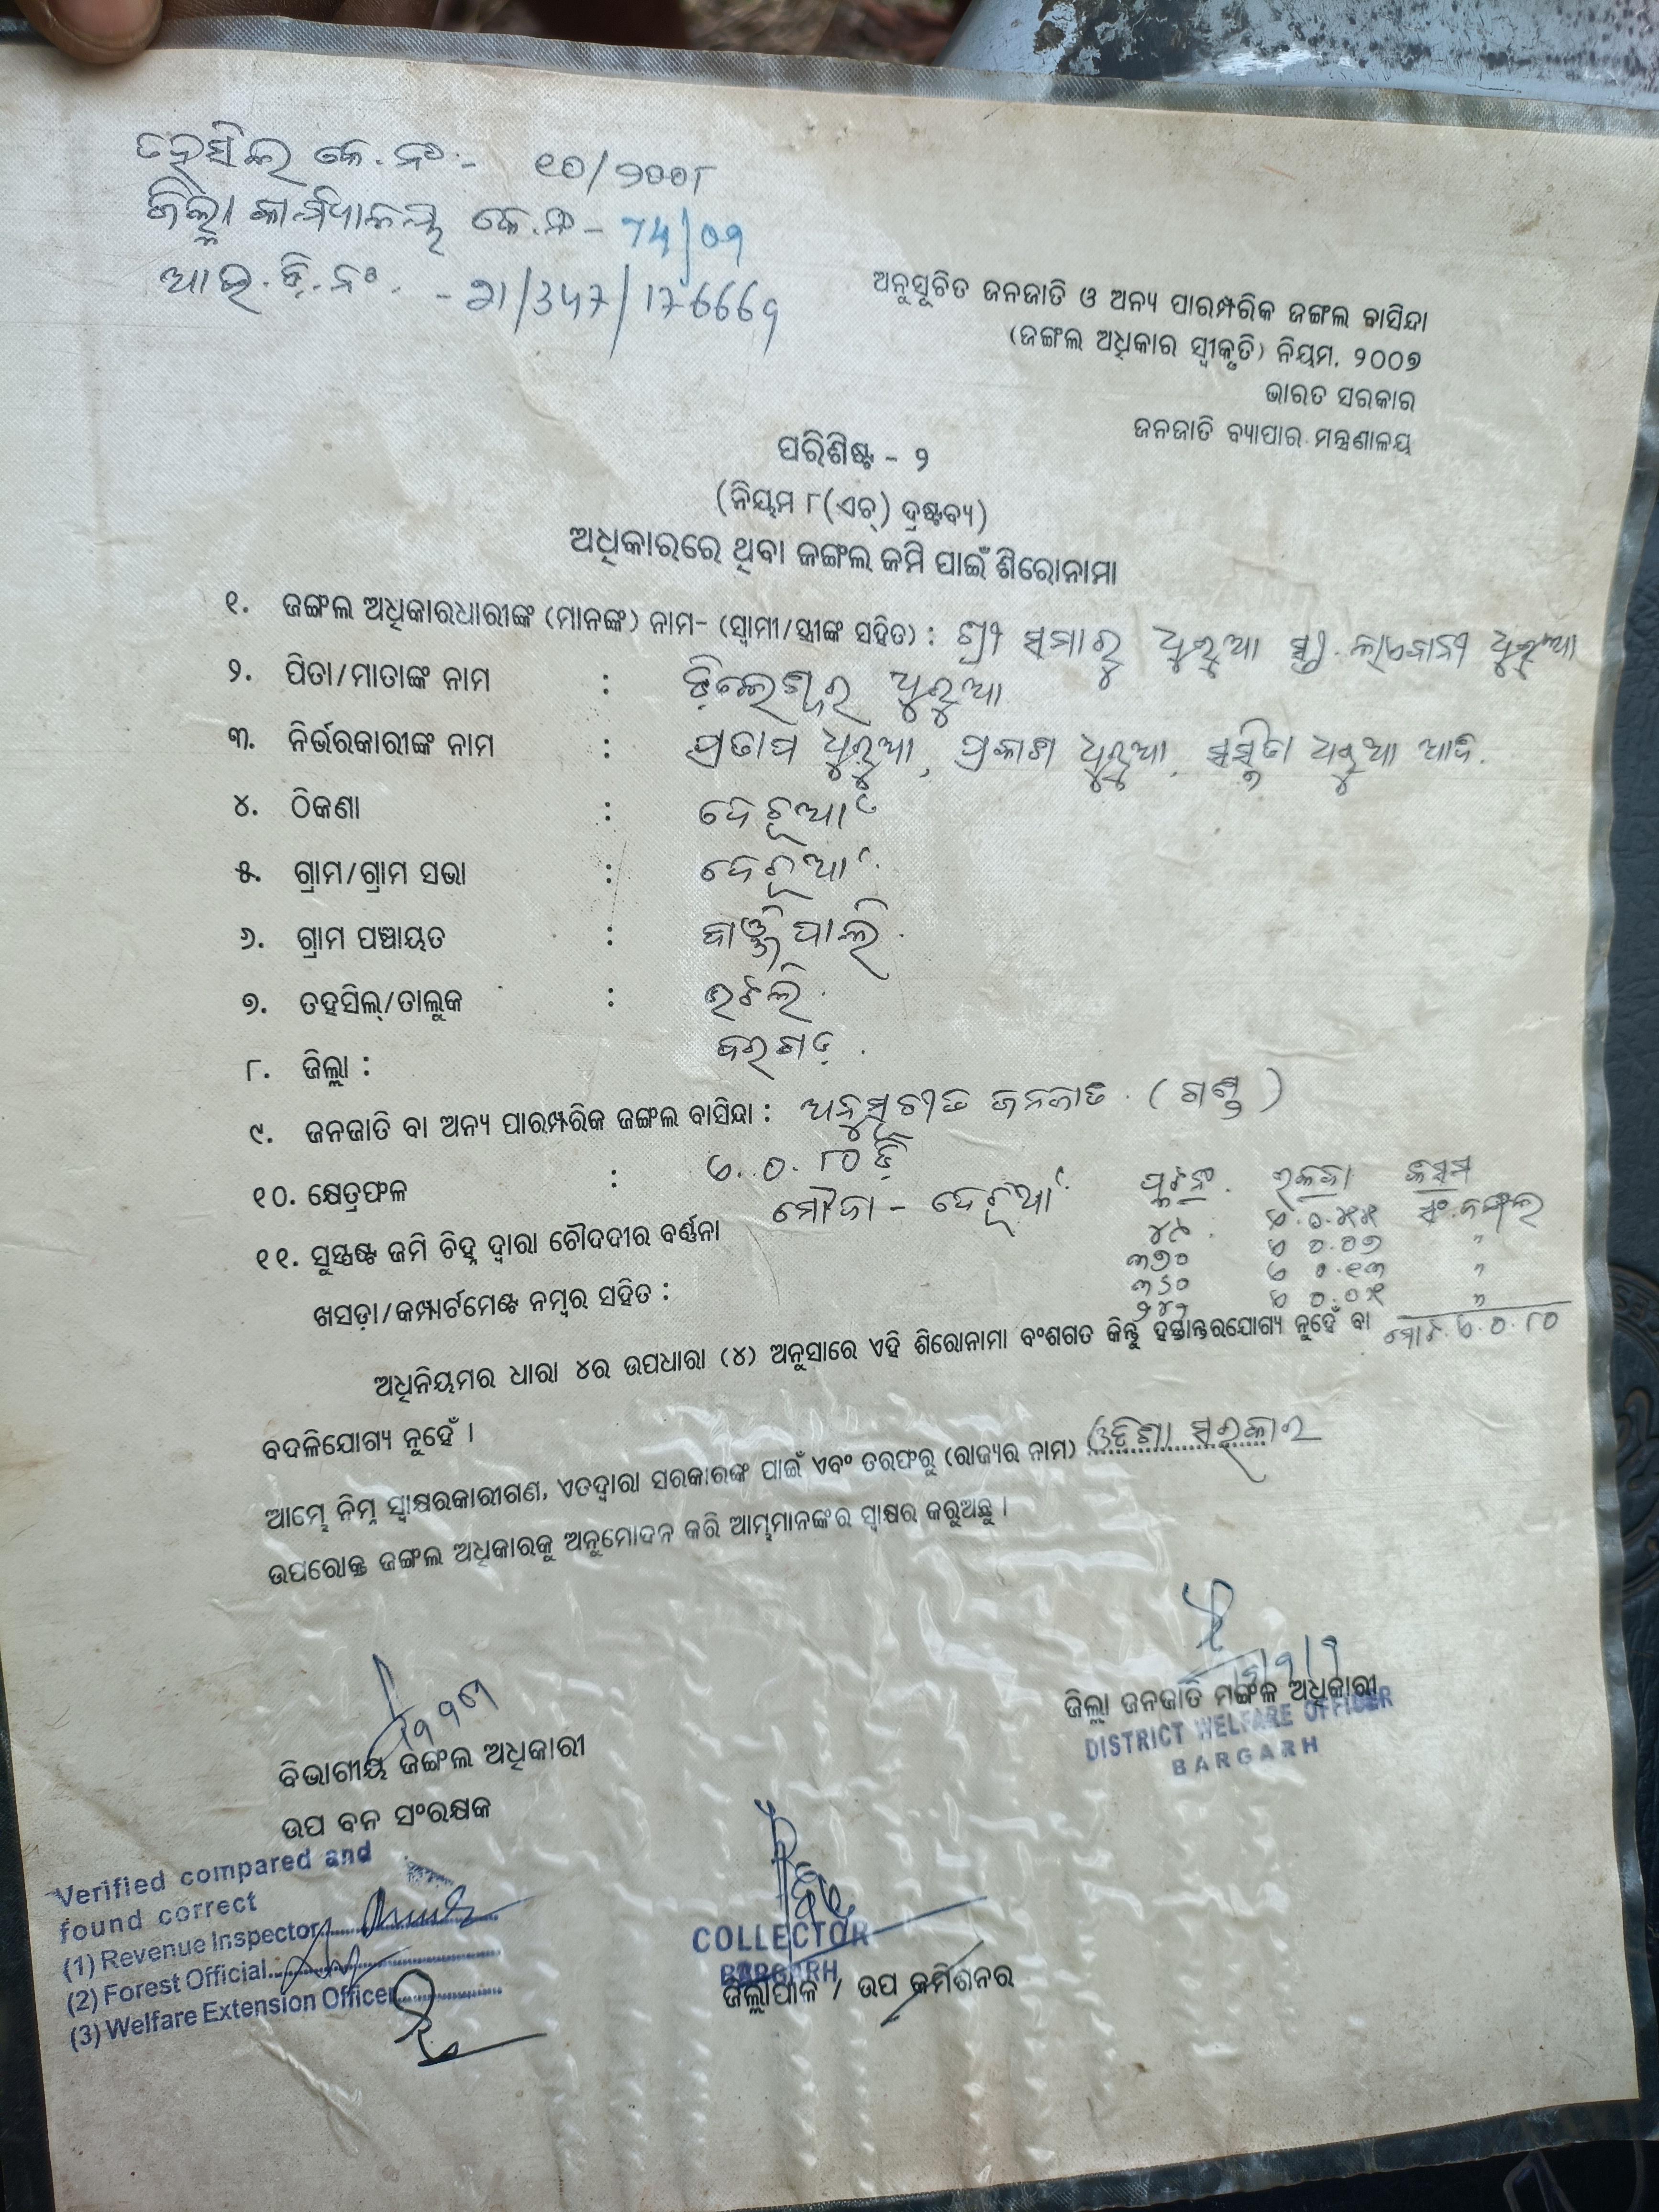 ତହସିଲ କେ.ନଂ:- ୧୦/୨୦୦୮
ଜିଲ୍ଲା କାର୍ଯ୍ୟାଳୟ କେ.ନଂ - 74/09
ଆଇ.ଡି.ନଂ. - 21/347/176669
ଅନୁସୂଚିତ ଜନଜାତି ଓ ଅନ୍ୟ ପାରମ୍ପରିକ ଜଙ୍ଗଲ ବାସିନ୍ଦା
(ଜଙ୍ଗଲ ଅଧିକାର ସ୍ୱୀକୃତି) ନିୟମ, ୨୦୦୭
ଭାରତ ସରକାର
ଜନଜାତି ବ୍ୟାପାର ମନ୍ତ୍ରଣାଳୟ
ପରିଶିଷ୍ଟ - ୨
(ନିୟମ ୮(ଏଚ୍) ଦ୍ରଷ୍ଟବ୍ୟ)
ଅଧିକାରରେ ଥିବା ଜଙ୍ଗଲ ଜମି ପାଇଁ ଶିରୋନାମା
୧. ଜଙ୍ଗଲ ଅଧିକାରଧାରୀଙ୍କ (ମାନଙ୍କ) ନାମ- (ସ୍ୱାମୀ/ସ୍ତ୍ରୀଙ୍କ ସହିତ) : ଶ୍ରୀ ସମାରୁ ଧୁରୁଆ ଧୁରୁଆ
୨. ପିତା/ମାତାଙ୍କ ନାମ : ଧୁରୁଆ
୩. ନିର୍ଭରକାରୀଙ୍କ ନାମ : ପ୍ରତାପ ଧୁରୁଆ, ପ୍ରକାଶ ଧୁରୁଆ, ସସ୍ମିତା ଧୁରୁଆ ଆଦି.
୪. ଠିକଣା : ଦେହୂଆଁ
୫. ଗ୍ରାମ/ଗ୍ରାମ ସଭା : ଦେହୂଆଁ.
୬. ଗ୍ରାମ ପଞ୍ଚାୟତ : ବାଞ୍ଜିପାଲି.
୭. ତହସିଲ୍/ତାଲୁକ : ଭଟଲି.
୮. ଜିଲ୍ଲା : ବରଗଡ଼.
୯. ଜନଜାତି ବା ଅନ୍ୟ ପାରମ୍ପରିକ ଜଙ୍ଗଲ ବାସିନ୍ଦା : ଅନୁସୂଚୀତ ଜନଜାତି. (ଗଣ୍ଡ)
୧୦. କ୍ଷେତ୍ରଫଳ : ଏ.୦.୮୦ ଡ଼ି
୧୧. ସୁସ୍ପଷ୍ଟ ଜମି ଚିହ୍ନ ଦ୍ୱାରା ଚୌଦଦୀର ବର୍ଣ୍ଣନା ମୌଜା - ଦେହୂଆଁ.
ଖସଡ଼ା/କମ୍ପାର୍ଟମେଣ୍ଟ ନମ୍ବର ସହିତ :
ପ୍ଲଟ ନଂ. ରକବା କିସମ
ଏ.୦.୫୫ ସଂ.ଜଙ୍ଗଲ
୩୭୦ ଏ ୦.୦୭ "
୩୬୦ ଏ ୦.୧୩ "
ଏ ୦.୦୫ "
ମୋଟ.ଏ.୦.୮୦
ଅଧିନିୟମର ଧାରା ୪ର ଉପଧାରା (୪) ଅନୁସାରେ ଏହି ଶିରୋନାମା ବଂଶଗତ କିନ୍ତୁ ହସ୍ତାନ୍ତରଯୋଗ୍ୟ ନୁହେଁ ବା
ବଦଳିଯୋଗ୍ୟ ନୁହେଁ ।
ଆମ୍ଭେ ନିମ୍ନ ସ୍ୱାକ୍ଷରକାରୀଗଣ, ଏତଦ୍ୱାରା ସରକାରଙ୍କ ପାଇଁ ଏବଂ ତରଫରୁ (ରାଜ୍ୟର ନାମ) ଓଡିଶା ସରକାର
ଉପରୋକ୍ତ ଜଙ୍ଗଲ ଅଧିକାରକୁ ଅନୁମୋଦନ କରି ଆମ୍ଭମାନଙ୍କର ସ୍ୱାକ୍ଷର କରୁଅଛୁ ।
ଜିଲ୍ଲା ଜନଜାତି ମଙ୍ଗଳ ଅଧିକାରୀ
DISTRICT WELFARE OFFICER
BARGARH
ବିଭାଗୀୟ ଜଙ୍ଗଲ ଅଧିକାରୀ
ଉପ ବନ ସଂରକ୍ଷକ
Verified compared and
found correct
(1) Revenue Inspector
(2) Forest Official
(3) Welfare Extension Officer
COLLECTOR
BARGARH
ଜିଲ୍ଲାପାଳ / ଉପ କମିଶନର